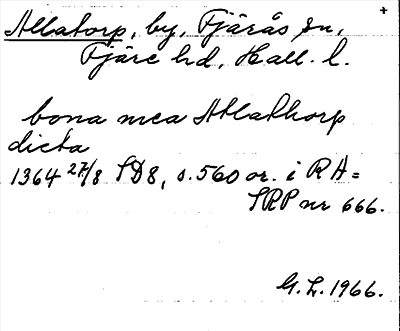 +
Allatorp, by, Fjärås sn,
Fjäre hd, Hall. l.
bona mea Atlathorp
dicta
1364 27/8 SD8, s. 560 or. i RA =
SRP nr 666.
G. L. 1966.